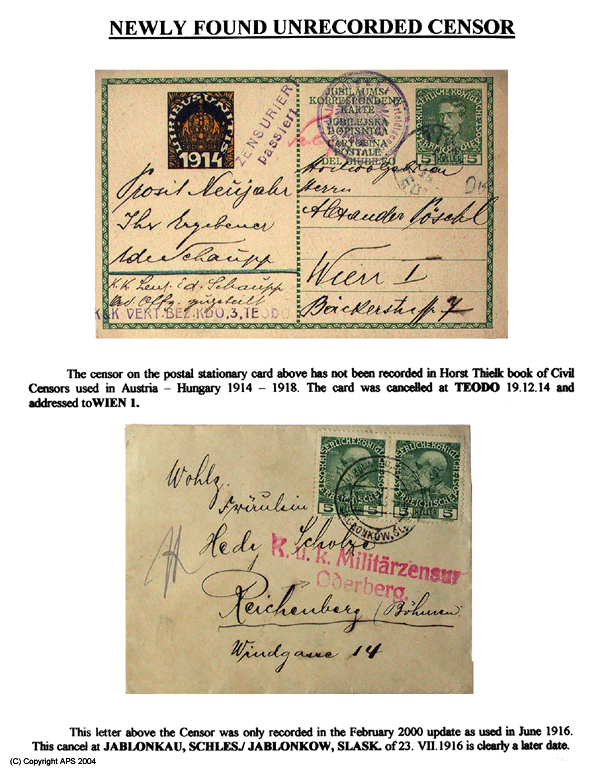 NEWLY FOUND UNRECORDED CENSOR
1914
ZENSURIERT
passiert
JUBILÄUMS
KORRESPONDENZ
KARTE
JUBILEJSKA
DOPISNICA
CARTOLINA
POSTALE
DEL GIUBILEO
5 5
Prosit Neujahr
Ihr Ergebener
Herrn
Alexander Pöschl
Wien I
Bäckerstraße 7
K.K. Leut. Ed. Schaupp
zugeteilt
K.u.K VERT. BEZ. KDO, 3, TEODO
The censor on the postal stationary card above has not been recorded in Horst Thielk book of Civil
Censors used in Austria – Hungary 1914 – 1918. The card was cancelled at TEODO 19.12.14 and
addressed toWIEN 1.
5 5 5 5
Wohlg.
Fräulein
Hedy Scholze
K. u. k. Militärzensur
Oderberg.
Reichenberg (Böhmen)
Windgasse 14
This letter above the Censor was only recorded in the February 2000 update as used in June 1916.
This cancel at JABLONKAU, SCHLES./ JABLONKOW, SLASK. of 23. VII.1916 is clearly a later date.
(C) Copyright APS 2004